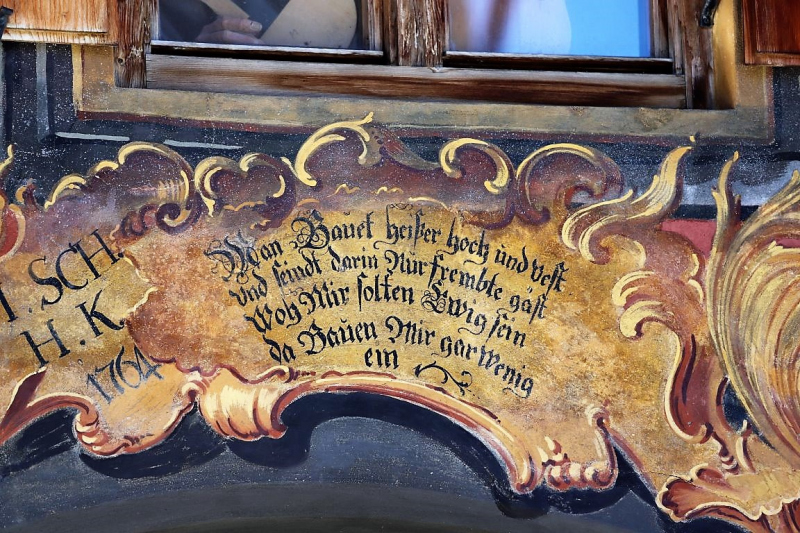 . SCH.
H. K.
1764
Man Bauet heißer hoch und vest
Und seindt darin Nur frembte gäst
Woy Mir solten Ewig sein
da Bauen Mir gar Wenig
ein